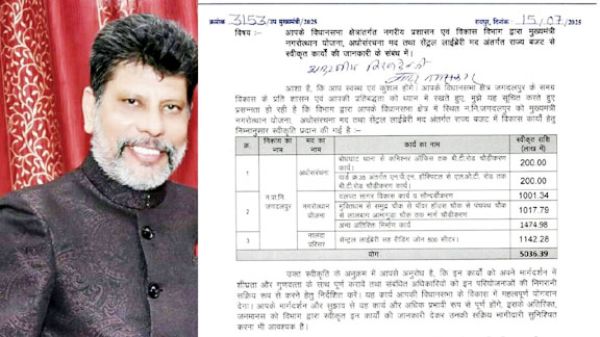 क्रमांक 3153/उप मुख्यमंत्री/2025
रायपुर, दिनांक 15/07/2025
विषय :- आपके विधानसभा क्षेत्रातर्गत नगरीय प्रशासन एवं विकास विभाग द्वारा मुख्यमंत्री
नगरोत्थान योजना, अधोसंरचना मद तथा सेंट्रल लाईब्रेरी मद अंतर्गत राज्य बजट से
स्वीकृत कार्यों की जानकारी के संबंध में।
आशा है, कि आप स्वस्थ एवं कुशल होंगे। आपके विधानसभा क्षेत्र जगदलपुर के समग्र
विकास के प्रति शासन एवं आपकी प्रतिबद्धता को ध्यान में रखते हुए, मुझे यह सूचित करते हुए
प्रसन्नता हो रही है कि विभाग द्वारा आपके विधानसभा क्षेत्र में स्थित न.नि.जगदलपुर को मुख्यमंत्री
नगरोत्थान योजना, अधोसंरचना मद तथा सेंट्रल लाईब्रेरी मद अंतर्गत राज्य बजट में विकास कार्यों हेतु
निम्नानुसार स्वीकृति प्रदान की गई है :-
क्र. निकाय का नाम मद का नाम कार्य का नाम स्वीकृत राशि (लाख में)
1 अधोसंरचना बोधघाट थाना से कमिश्नर ऑफिस तक बी.टी.रोड चौड़ीकरण कार्य। 200.00
वार्ड क्र.35 अंतर्गत एम.पी.एम. हॉस्पिटल से एस.ओ.टी. रोड तक बी.टी.रोड चौड़ीकरण कार्य। 200.00
न.पा.नि जगदलपुर
2 नगरोत्थान योजना दलपत सागर विकास कार्य व सौन्दर्यीकरण 1001.34
मुक्तिधाम से समुद्र चौक से पॉवर हॉउस चौक से पंचपथ चौक से लालबाग आमागुड़ा चौक तक मार्ग चौड़ीकरण 1017.79
अन्य अतिरिक्त निर्माण कार्य 1474.98
3 नालंदा परिसर सेन्ट्रल लाईब्रेरी सह रीडिंग जोन 500 सीटर। 1142.28
योग 5036.39
उक्त स्वीकृति के अनुक्रम में आपसे अनुरोध है, कि इन कार्यों को अपने मार्गदर्शन में
शीघ्रता और गुणवत्ता के साथ पूर्ण करावें तथा संबंधित अधिकारियों को इन परियोजनाओं की निगरानी
सक्रिय रूप से करने हेतु निर्देशित करें। यह कार्य आपकी विधानसभा के विकास में महत्वपूर्ण योगदान
देगा। आपके मार्गदर्शन और सुझाव से यह कार्य और अधिक प्रभावी रूप से पूर्ण होंगे, इसके अतिरिक्त,
जनमानस को विभाग द्वारा स्वीकृत इन कार्यों की जानकारी देकर उनकी सक्रिय भागीदारी सुनिश्चित
करना भी आवश्यक है।